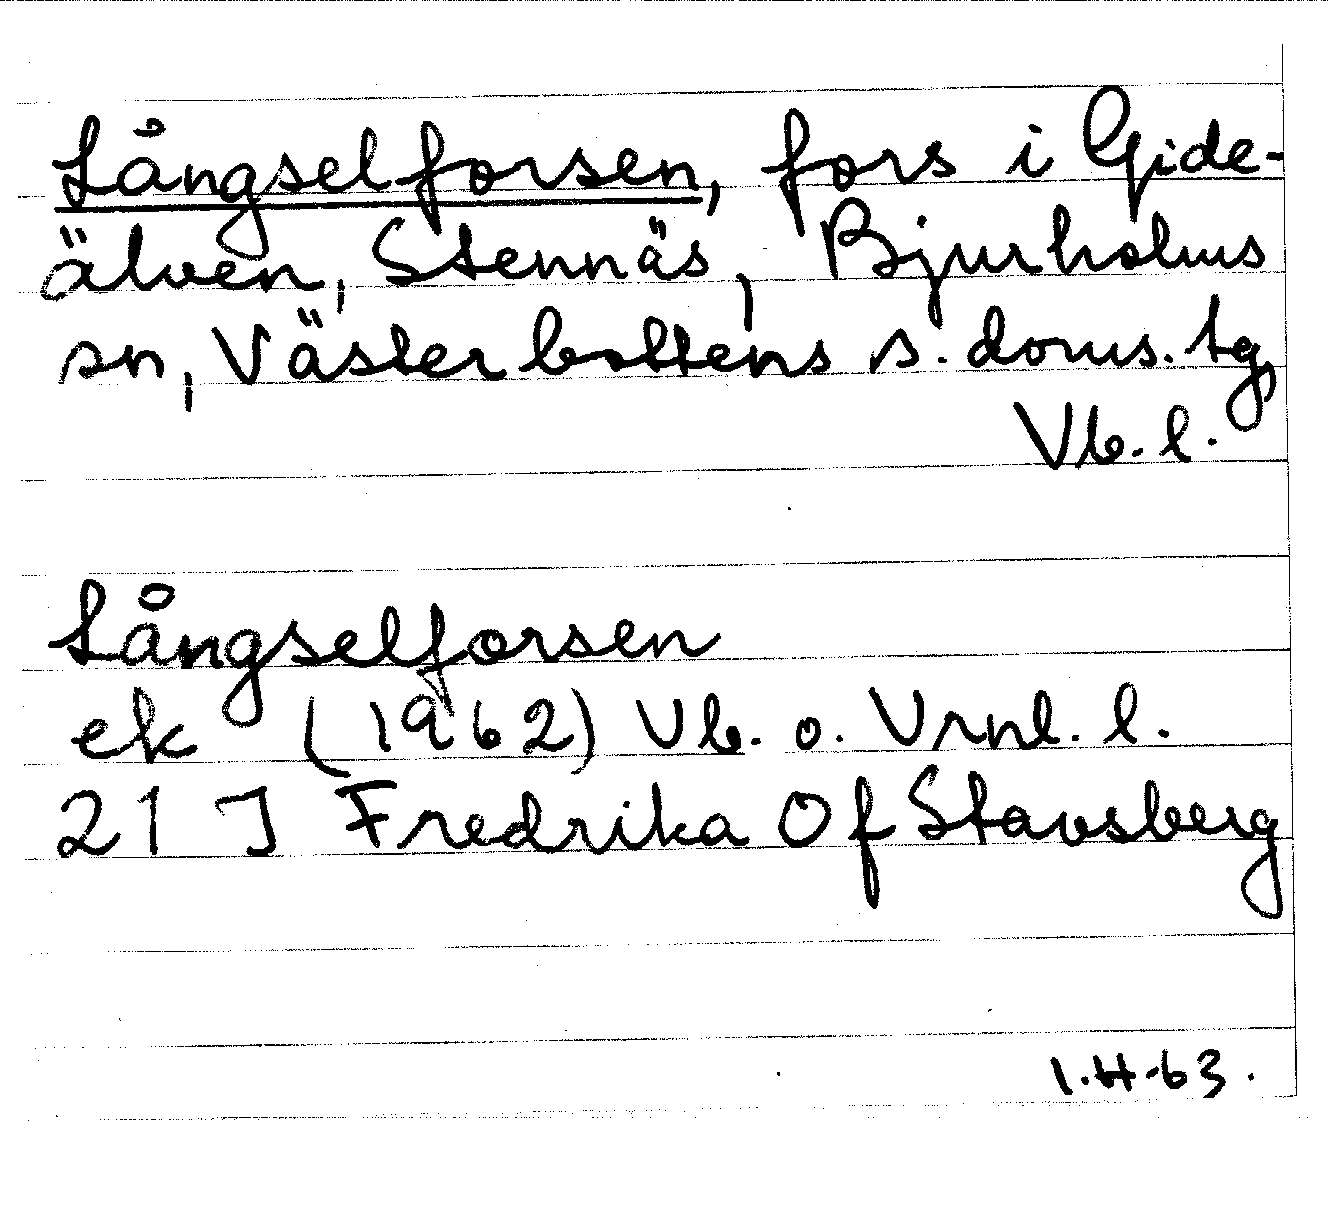 Långselforsen, fors i Gide-
älven, Stennäs, Bjurholms
sn, Västerbottens s. doms. tg,
Vb. l.
Långselforsen
ek (1962) Vb. o. Vrnl. l.
21 J Fredrika Of Stavsberg
I.H-63.